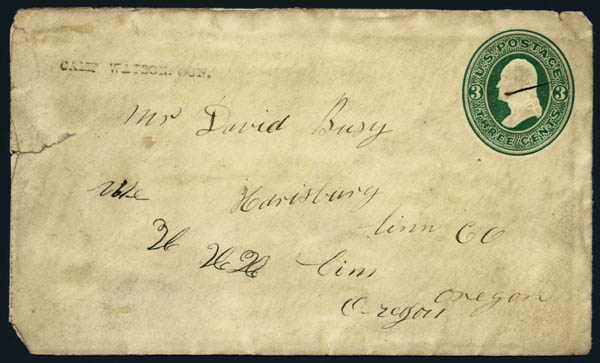 U.S. POSTAGE
3 3
THREE CENTS
CAMP WATSON. OGN.
Mr David Busy
Harisburg
Linn CO
H HH Linn
Oregon oregon